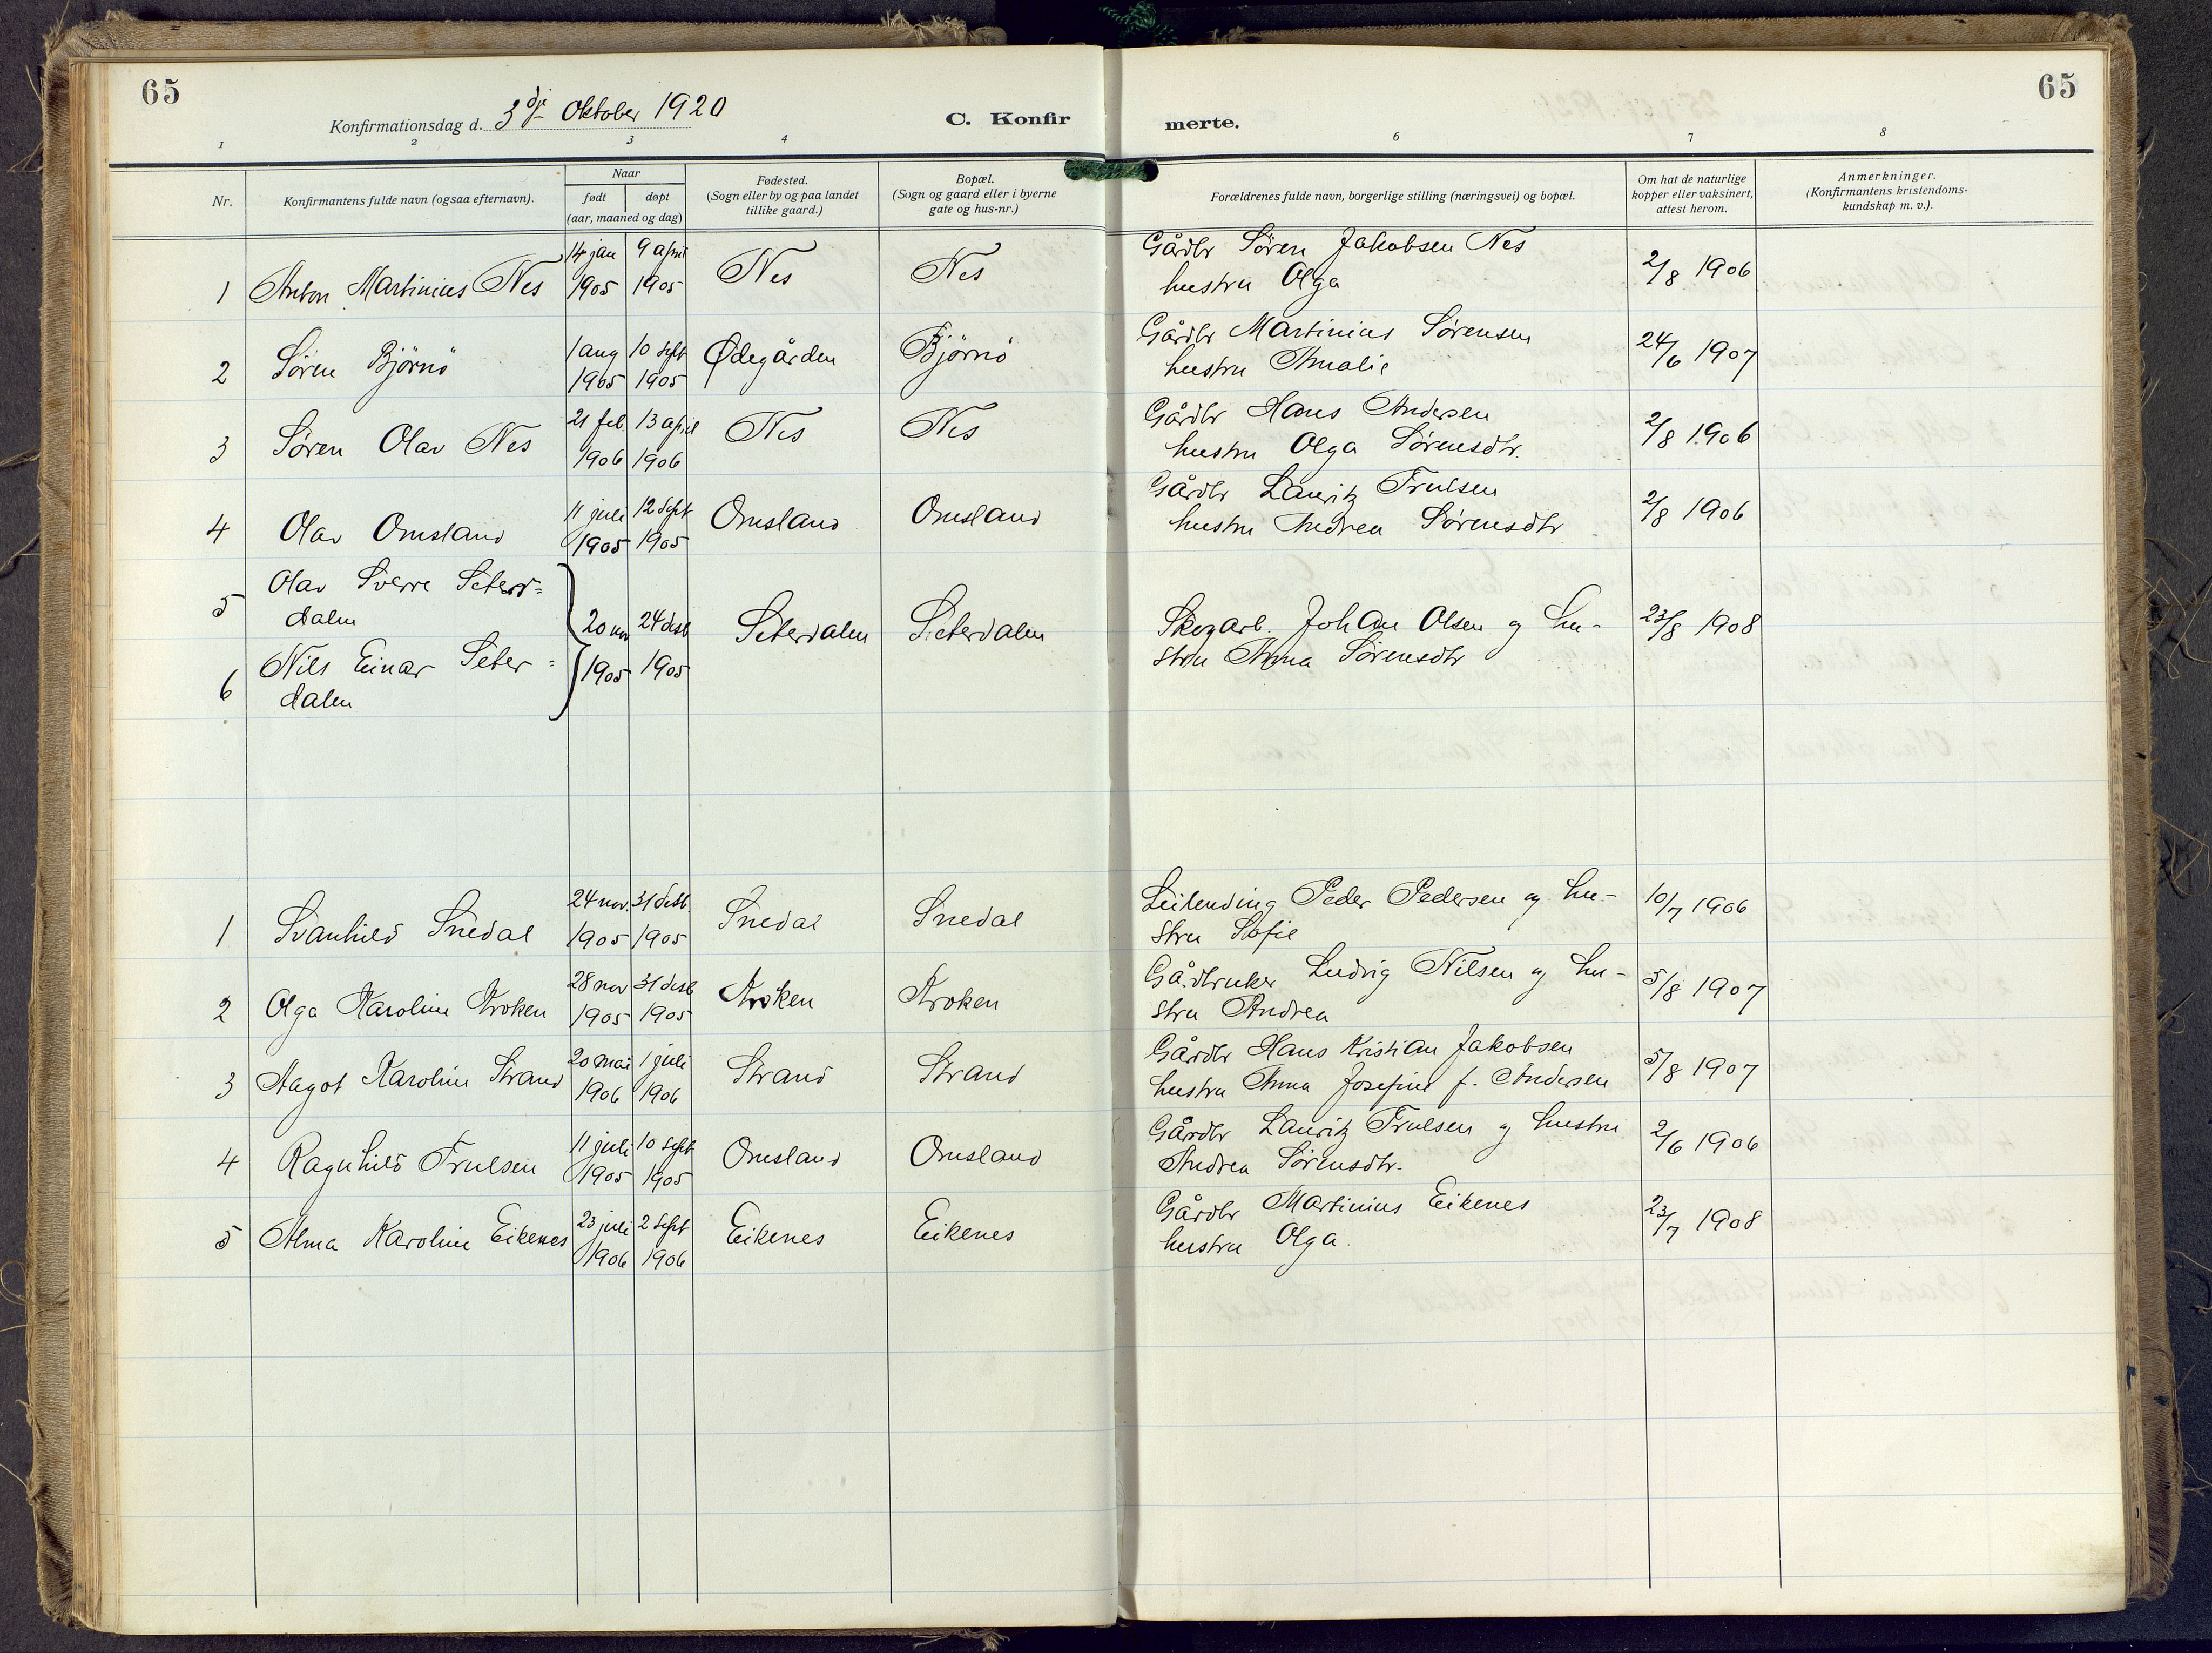 65
65
Konfirmationsdag d. 3dje Oktober 1920
C. Konfir
merte.
1 2 3 4 6 7 8
Nr.
Konfirmantens fulde navn (ogsaa efternavn).
Naar
født døpt
(aar, maaned og dag)
Fødested.
(Sogn eller by og paa landet
tillike gaard.)
Bopæl.
(Sogn og gaard eller i byerne
gate og hus-nr.)
Forældrenes fulde navn, borgerlige stilling (næringsvei) og bopæl.
Om hat de naturlige
kopper eller vaksinert,
attest herom.
Anmerkninger.
(Konfirmantens kristendoms-
kundskap m. v.).
14 jan 9 april Gårdbr Søren Jakobsen Nes
1 Anton Martinius Nes 1905 1905 Nes Nes hustru Olga 2/8 1906
1 aug 10 sept Gårdbr Martinius Sørensen
2 Søren Bjørnö 1905 1905 Ødegården Bjørnö hustru Amalie 24/6 1907
21 feb. 13 april Gårdbr Hans Andersen
3 Søren Olav Nes 1906 1906 Nes Nes hustru Olga Sørensdtr. 2/8 1906
11 juli 12 sept Gårdbr Lauritz Trulsen
4 Olav Omsland 1905 1905 Omsland Omsland hustru Andrea Sørensdtr 2/8 1906
5 Olav Sverre Seters=
dalen 20 nov 24 desb Seterdalen Seterdalen Skogarb. Johan Olsen og hu- 23/8 1908
6 Nils Einar Seter= 1905 1905 stru Anna Sørensdtr
dalen
24 nov. 31 desb. Leilending Peder Pedersen og hu- 10/7 1906
1 Svanhild Snedal 1905 1905 Snedal Snedal stru Sofie
28 nov 31 desb Gårdbruker Ludvig Nilsen og hu- 5/8 1907
2 Olga Karoline Kroken 1905 1905 Kroken Kroken stru Andrea
20 mai 1 juli Gårdbr Hans Kristian Jakobsen
3 Aagot Karoline Strand 1906 1906 Strand Strand hustru Anna Josefine f. Andersen 5/8 1907
11 juli 10 sept Gårdbr Lauritz Trulsen og hustru
4 Ragnhild Trulsen 1905 1905 Omsland Omsland Andrea Sørensdtr. 2/6 1906
23 juli 2 sept Gårdbr Martinius Eikenes
5 Alma Karoline Eikenes 1906 1906 Eikenes Eikenes hustru Olga. 23/7 1908